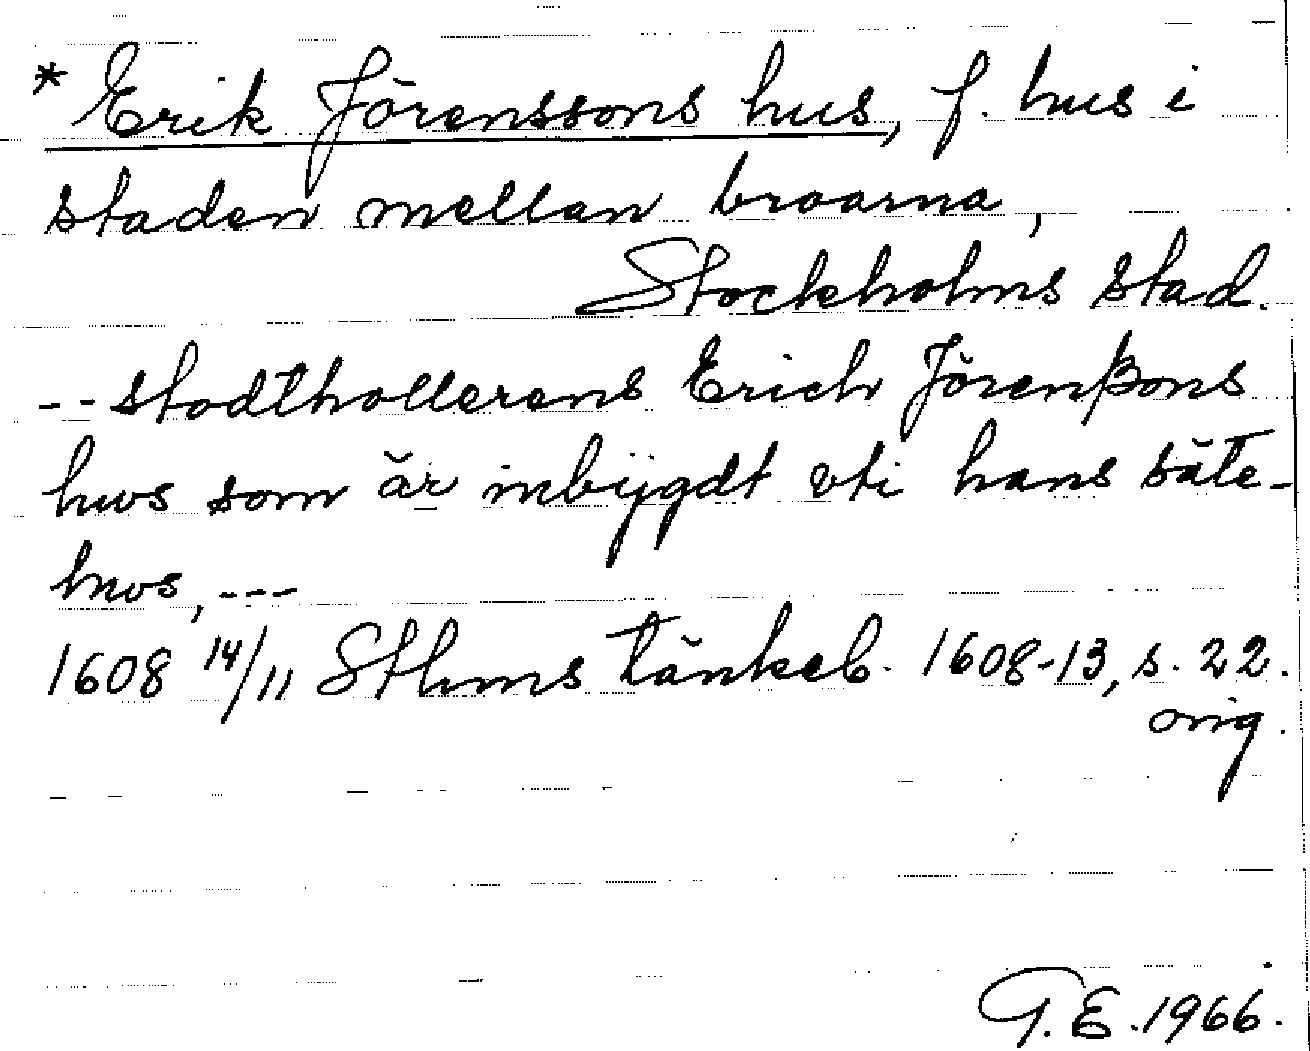 * Erik Jörenssons hus, f. hus i
staden mellan broarna,
Stockholms stad.
-- stodthollerens Erich Jörenßons
hws som är inbÿgdt vti hans säte-
hws, ---
1608 14/11 Sthms tänkeb. 1608-13, s. 22.
orig.
G. E. 1966.